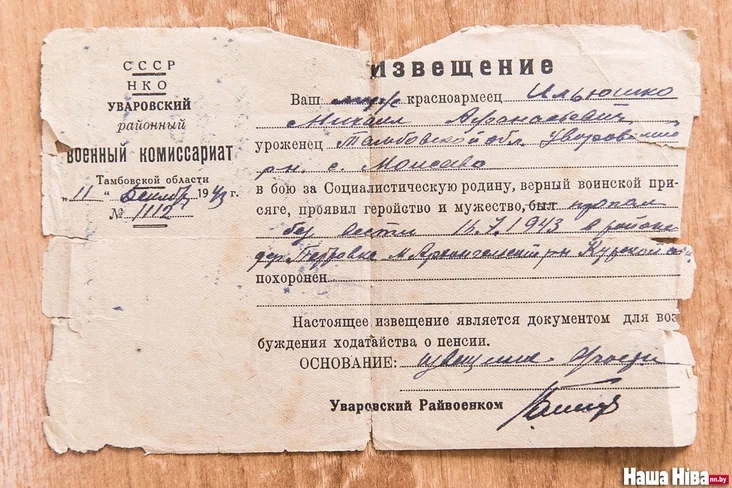 СССР
НКО
УВАРОВСКИЙ
районный
военный комиссариат
Тамбовской области
„ 11 “ 1943 г.
№ 1112
ИЗВЕЩЕНИЕ
Ваш муж красноармеец Ильюшко
Михаил Афанасьевич
уроженец Тамбовской обл. Уваровский
рн. с. Моисево
в бою за Социалистическую родину, верный воинской при-
сяге, проявил геройство и мужество, был пропал
без вести 16.7.1943 в районе
дер. Петровка М Архангельский рн Курской обл
похоронен
Настоящее извещение является документом для воз
буждения ходатайства о пенсии.
ОСНОВАНИЕ:
Уваровский Райвоенком
Наша Ніва nn.by